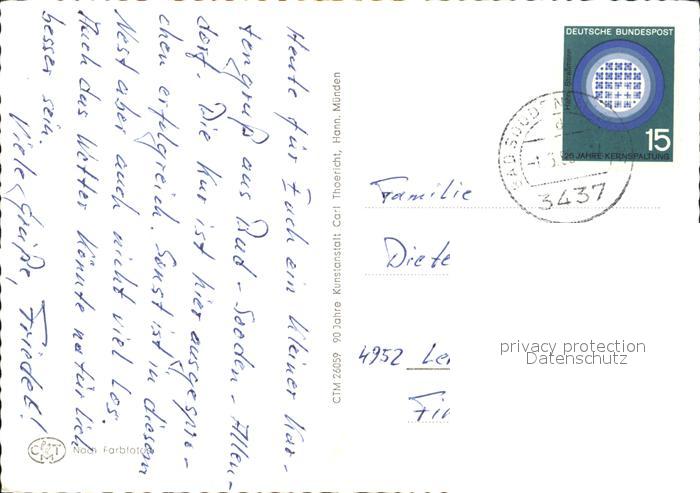 Heute für Euch ein kleiner Kar-
tengruß aus Bad-Sooden-Allen-
dorf. Die Kur ist hier ausgespro-
chen erfolgreich. Sonst ist in diesem
Nest aber auch nicht viel los.
Auch das Wetter könnte natürlich
besser sein.
Viele Grüße, Friedel!
CTM
Nach Farbfoto
CTM 26059 90 Jahre Kunstanstalt Carl Thoericht, Hann. Münden
DEUTSCHE BUNDESPOST
15
20 JAHRE KERNSPALTUNG
BAD SOODEN
3437
Familie
Diete
4952 Le
privacy protection
Datenschutz